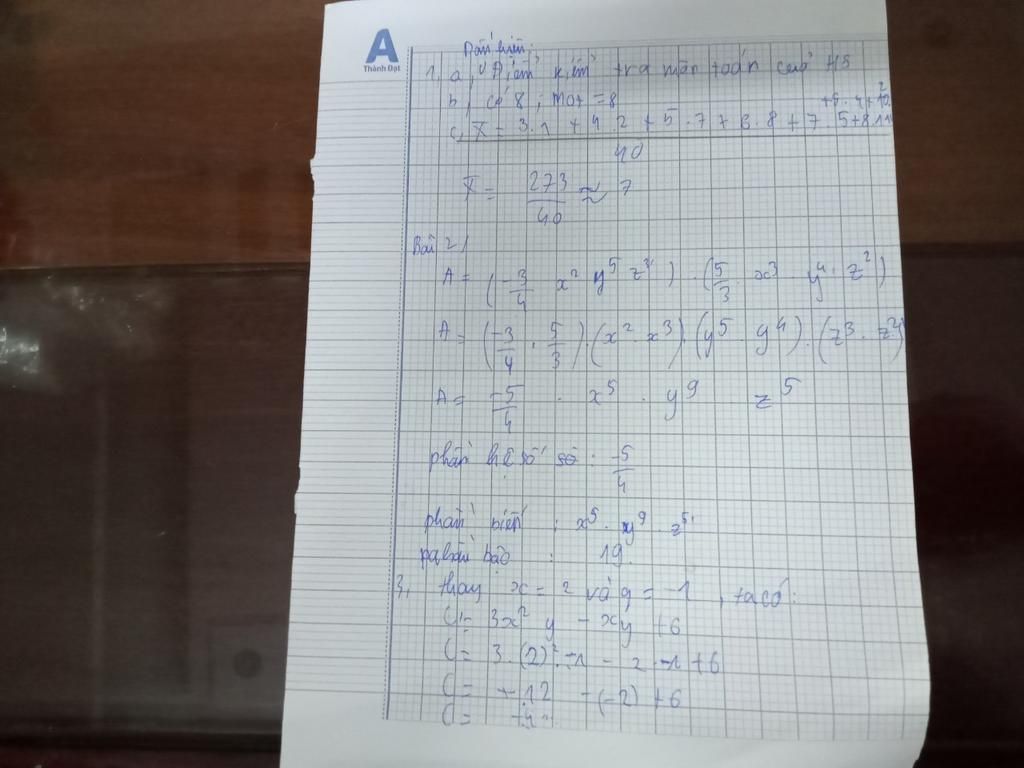 A
Thành Đạt
Dấu hiệu:
1, a, Điểm kiểm tra môn toán của HS
b, có 8; =8
+ 9. 4+10.2
c, X = 3.1 + 4.2 + 5.7 + 6.8 + 7.5+8.11
40
X = 273/40 ≈ 7
Bài 2/
A = (-3/4 x² y⁵ z³) . (5/3 . x³ y⁴ . z²)
A = (-3/4 . 5/3).(x² . x³).(y⁵ . y⁴).(z³ . z²)
A = -5/4 . x⁵ . y⁹ z⁵
phần hệ số : -5/4
phần biến : x⁵ . y⁹ . z⁵
: 19
3, thay x = 2 và y = -1, ta có:
C = 3x² y - xy + 6
C = 3.(2)².-1 - 2.-1+6
C = -12 -(-2) +6
C =